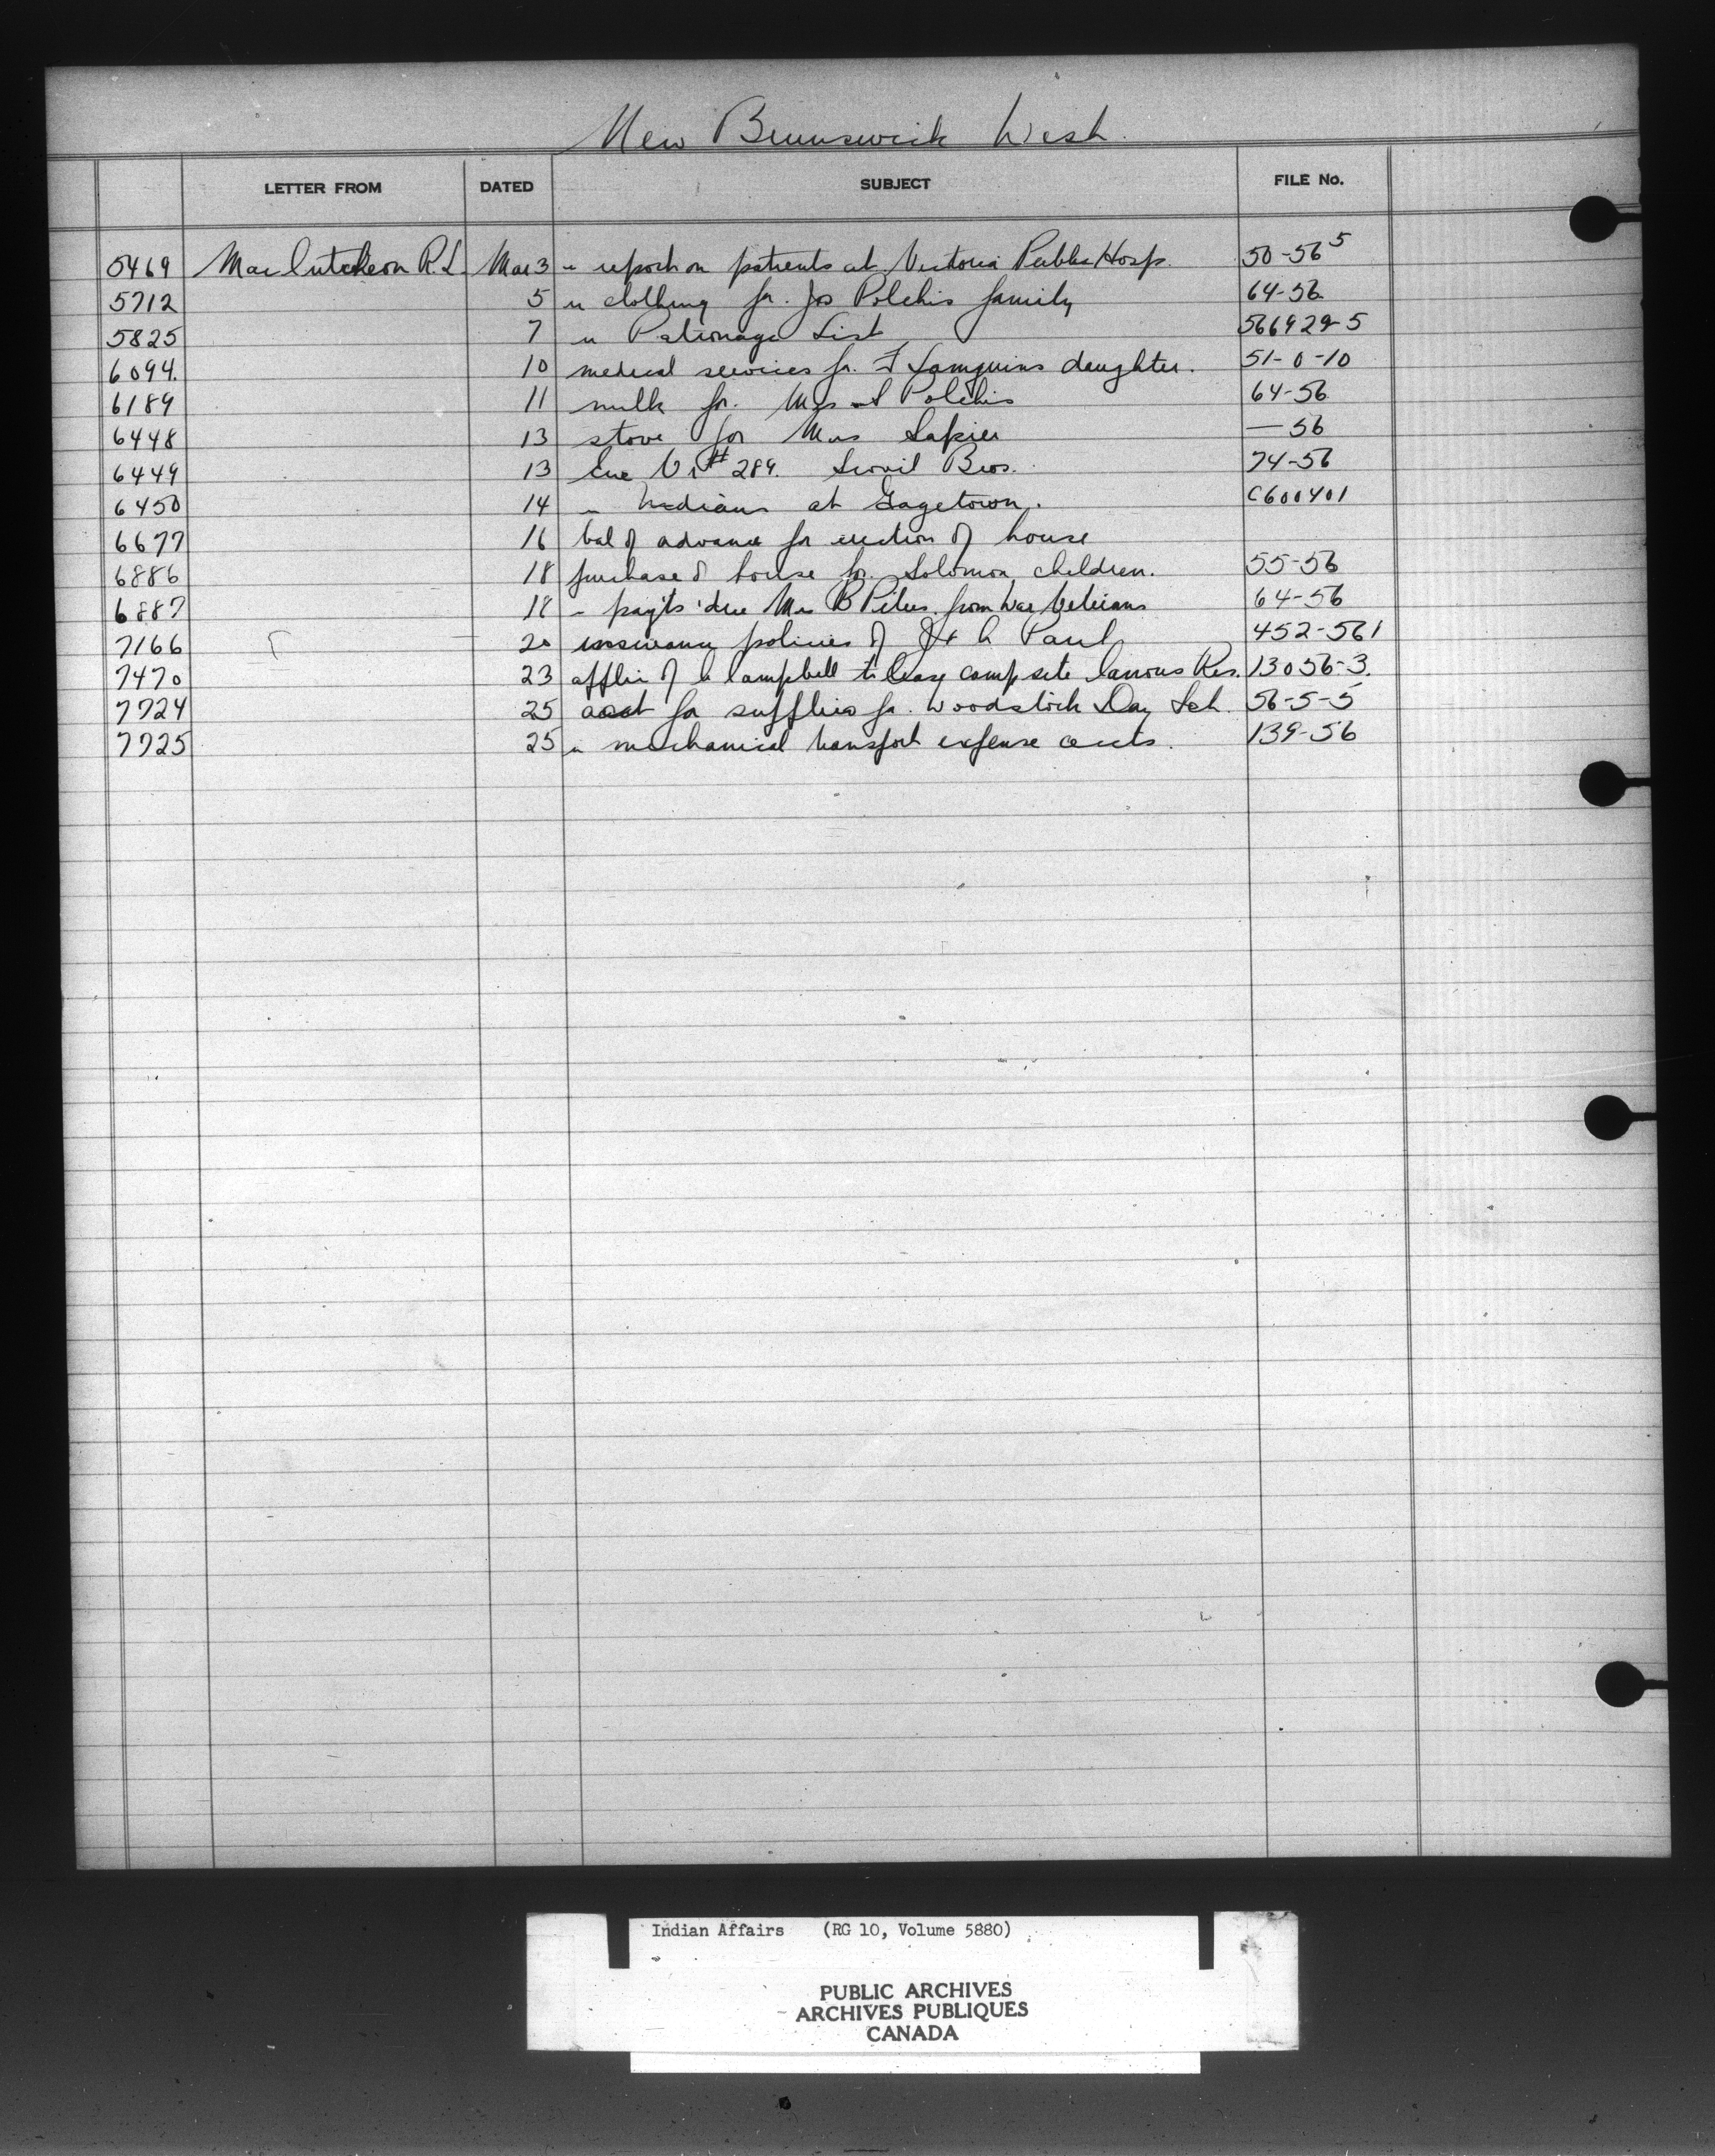 New Brunswick West.
LETTER FROM DATED SUBJECT FILE No.
5469 MacCutcheon R.L. Mar 3 " report on patients at Victoria Public Hosp. 50-56 5
5712 5 " clothing for Jos Polchis family 64-56
5825 7 " Patronage List 566929-5
6094. 10 medical services for F Sanquins daughter. 51-0-10
6189 11 milk for Mrs Polchis 64-56
6448 13 stove for Mrs Sapier — 56
6449 13 Vr # 289. Scovil Bros. 74-56
6450 14 " Indians at Gagetown. C600401
6677 16 bal of advance for erection of house
6886 18 purchase of house for Solomon children. 55-56
6887 18 " pay'ts due Mrs B from War Veterans 64-56
7166 20 insurance policies of Paul 452-561
7470 23 applic of Campbell to lease camp site Res. 13056-3.
7724 25 acct for supplies for Woodstock Day Sch. 56-5-5
7725 25 " mechanical transport expense accts. 139-56
Indian Affairs (RG 10, Volume 5880)
PUBLIC ARCHIVES
ARCHIVES PUBLIQUES
CANADA